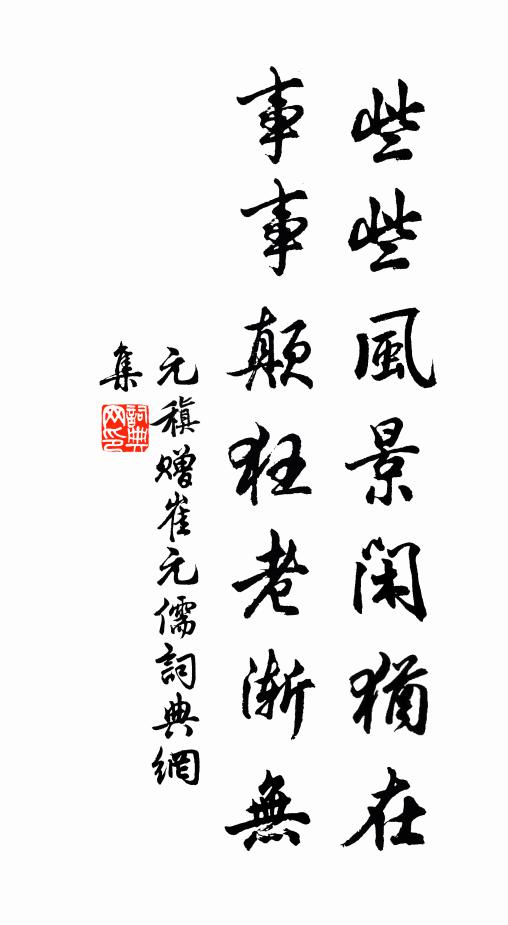 些些風景閑猶在
事事顛狂老漸無
元稹贈崔元儒詞典網
集
詞典网印